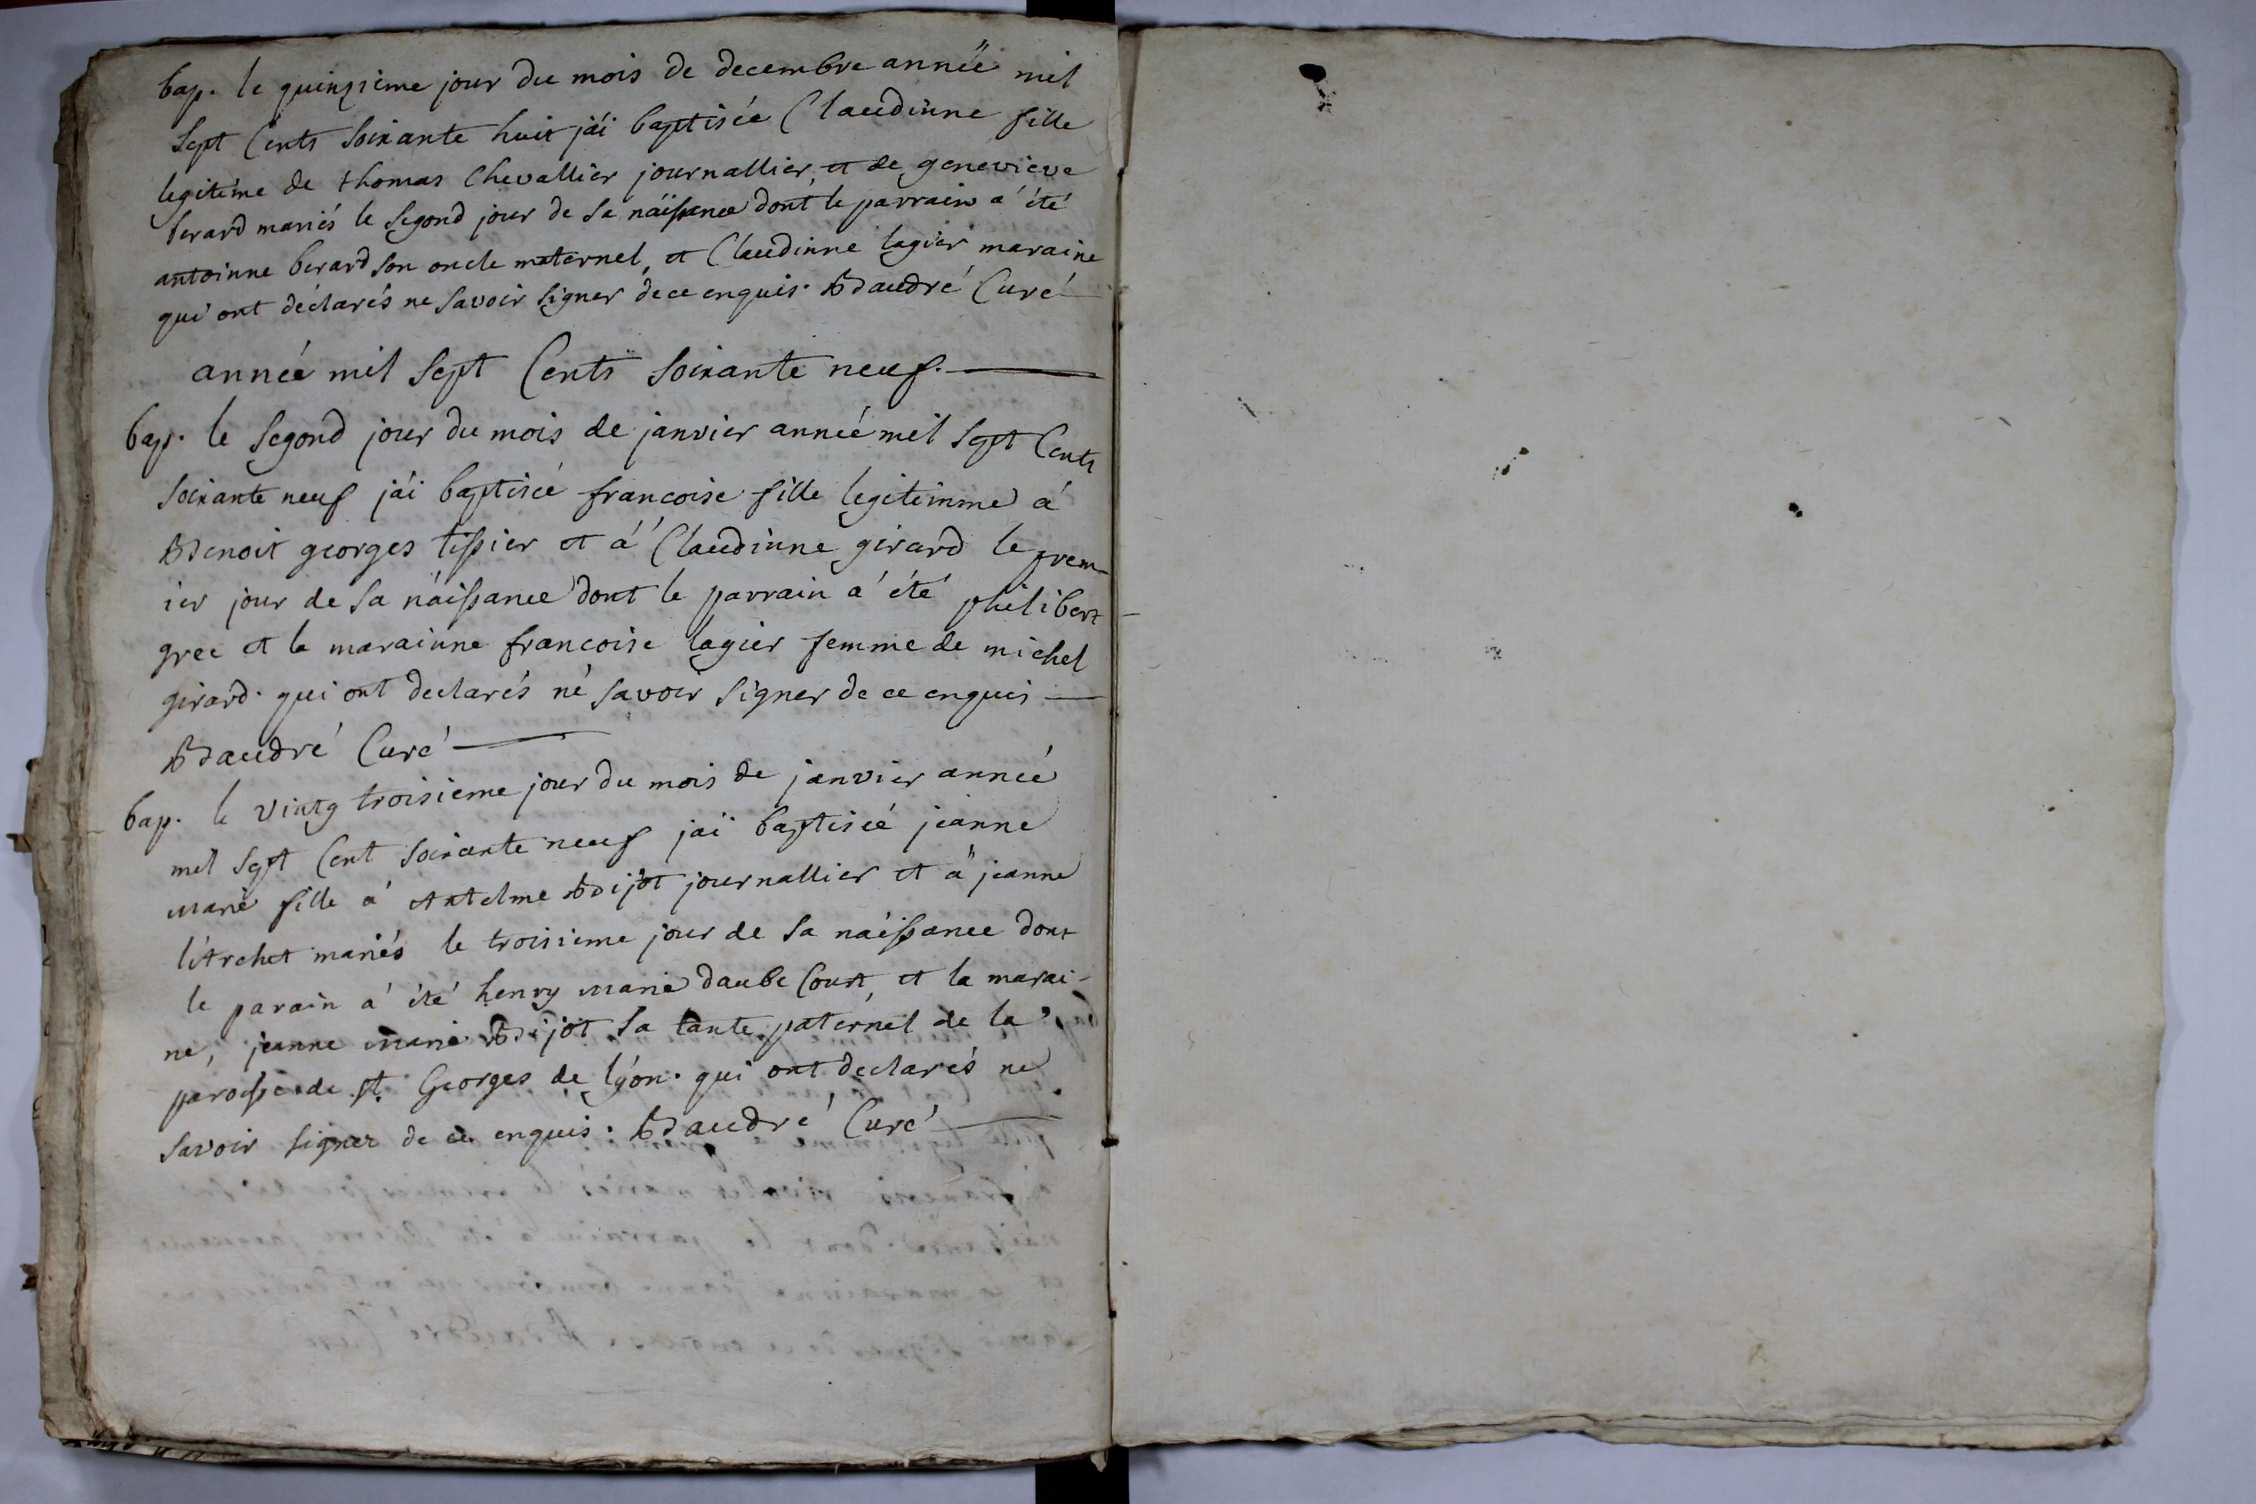 bap. le quinzieme jour du mois de decembre anneé mil
sept Cents soixante huit jái baptiséé Claudinne fille
legitéme de thomas Chevallier journallier, et de genevieve
berard mariés le segond jour de sa náissance dont le parrain a été
antoinne berard son oncle maternel, et Claudinne lagier maraine
qui ont déclarés ne savoir signer de ce enquis. Baudré Curé
anneé mil sept Cents soixante neuf.
bap. le segond jour du mois de janvier anneé mil sept Cents
soixante neuf jái baptiseé francoise fille legitimme á
Benoit georges tissier et á Claudinne girard le prem-
ier jour de sa náissance dont le parrain á été philibert
grec et la marainne francoise lagier femme de michel
girard. qui ont declarés né savoir signer de ce enquis
Baudré Curé
bap. le vintg troisieme jour du mois de janvier anneé
mil sept Cent soixante neuf jaï baptiseé jeanne
marie fille á Antelme Bijot journallier et á jeanne
l'Archet mariés le troisieme jour de sa náissance dont
le parain á été henry marie daube Court, et la marai-
ne, jeanne marie Bijot sa tante paternel de la
paroisse de st. Georges de lyon. qui ont declarés ne
savoir signer de ce enquis. Baudré Curé